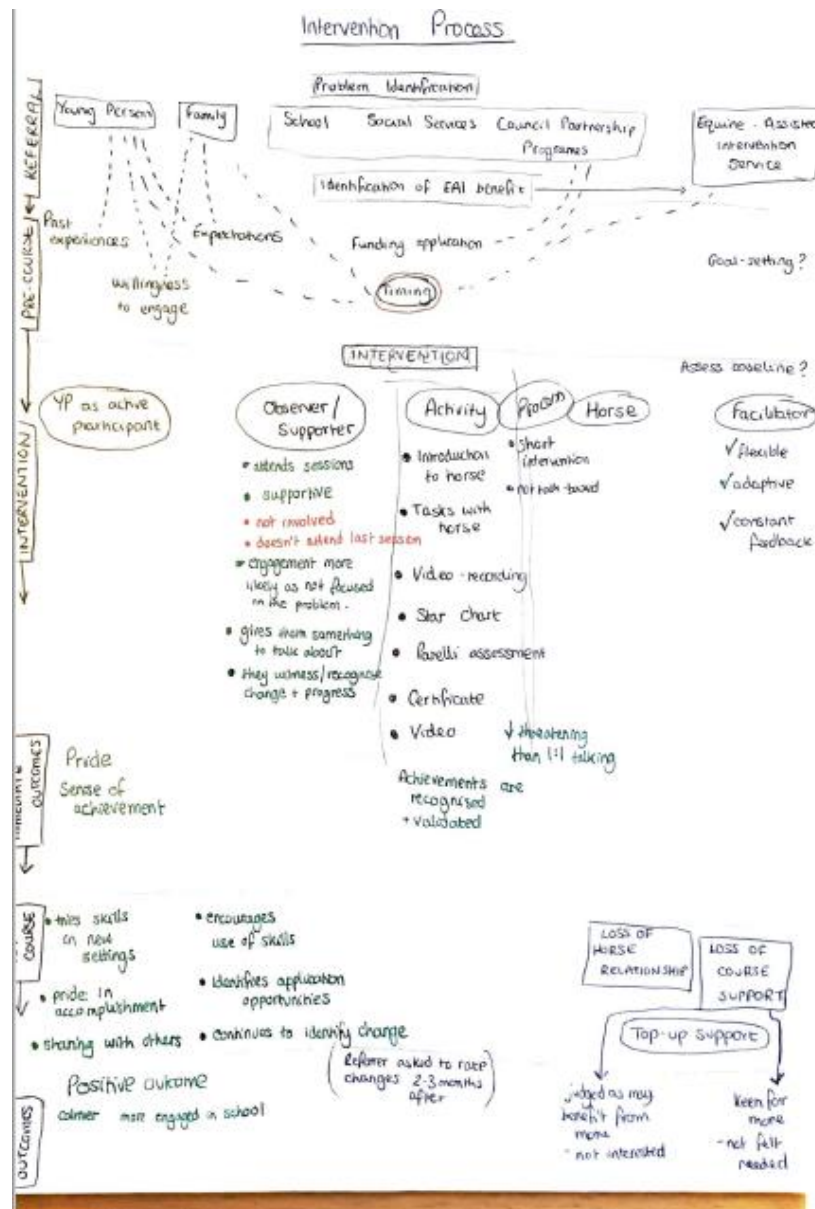 Intervention Process
Problem Identification
Young Person
Family
School Social Services Council Partnership
Programes
Equine-Assisted
Intervention
Service
REFERRAL
Identification of EAI benefit
Past
experiences
Expectations
Funding application
Willingness
to engage
Timing
Goal-setting?
PRE-COURSE
INTERVENTION
Assess baseline?
YP as active
participant
Observer/
Supporter
Activity
Process
Horse
Facilitator
INTERVENTION
• attends sessions
• supportive
• not involved
• doesn't attend last session
• engagement more
likely as not focused
on the problem.
• gives them something
to talk about
• they witness/recognise
change + progress
• Introduction
to horse
• Tasks with
horse
• Video-recording
• Star chart
• Parelli assessment
• Certificate
• Video
Achievements are
recognised
+ validated
• Short
intervention
• not talk-based
↓ threatening
than 1:1 talking
✓ flexible
✓ adaptive
✓ constant
feedback
OUTCOMES
Pride
Sense of
achievement
COURSE
• tries skills
in new
settings
• pride in
accomplishment
• sharing with others
• encourages
use of skills
• Identifies application
opportunities
• continues to identify change
(Referrer asked to rate
changes 2-3 months
after)
LOSS OF
HORSE
RELATIONSHIP
LOSS OF
COURSE
SUPPORT
Top-up support
judged as may
benefit from
more
- not interested
Keen for
more
- not felt
needed
OUTCOMES
Positive outcome
calmer more engaged in school